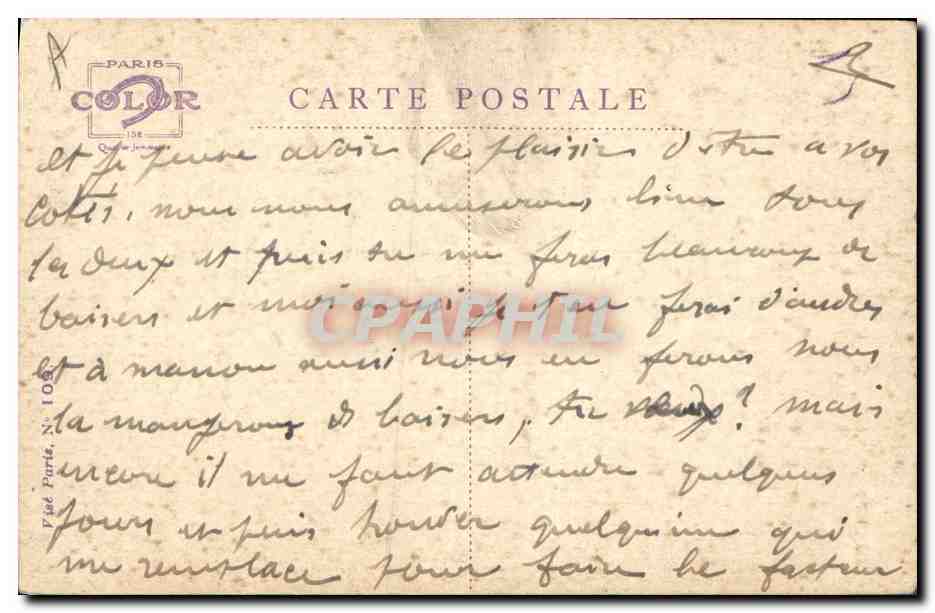 PARIS
COLOR
152
Quai de Jemmapes
CARTE POSTALE
et je puisse avoir le plaisir d'etre a vos
cotés, nous nous amuserons bien tous
les deux et puis tu me feras beaucoup de
baisers et moi aussi je t'en ferai d'autres
et à maman aussi nous en ferons nous
la mangerons de baisers, tu veux? mais
encore il me faut attendre quelques
jours et puis trouver quelqu'un qui
me remplace pour faire le facteur
Visé Paris, N° 109
CPAPHIL